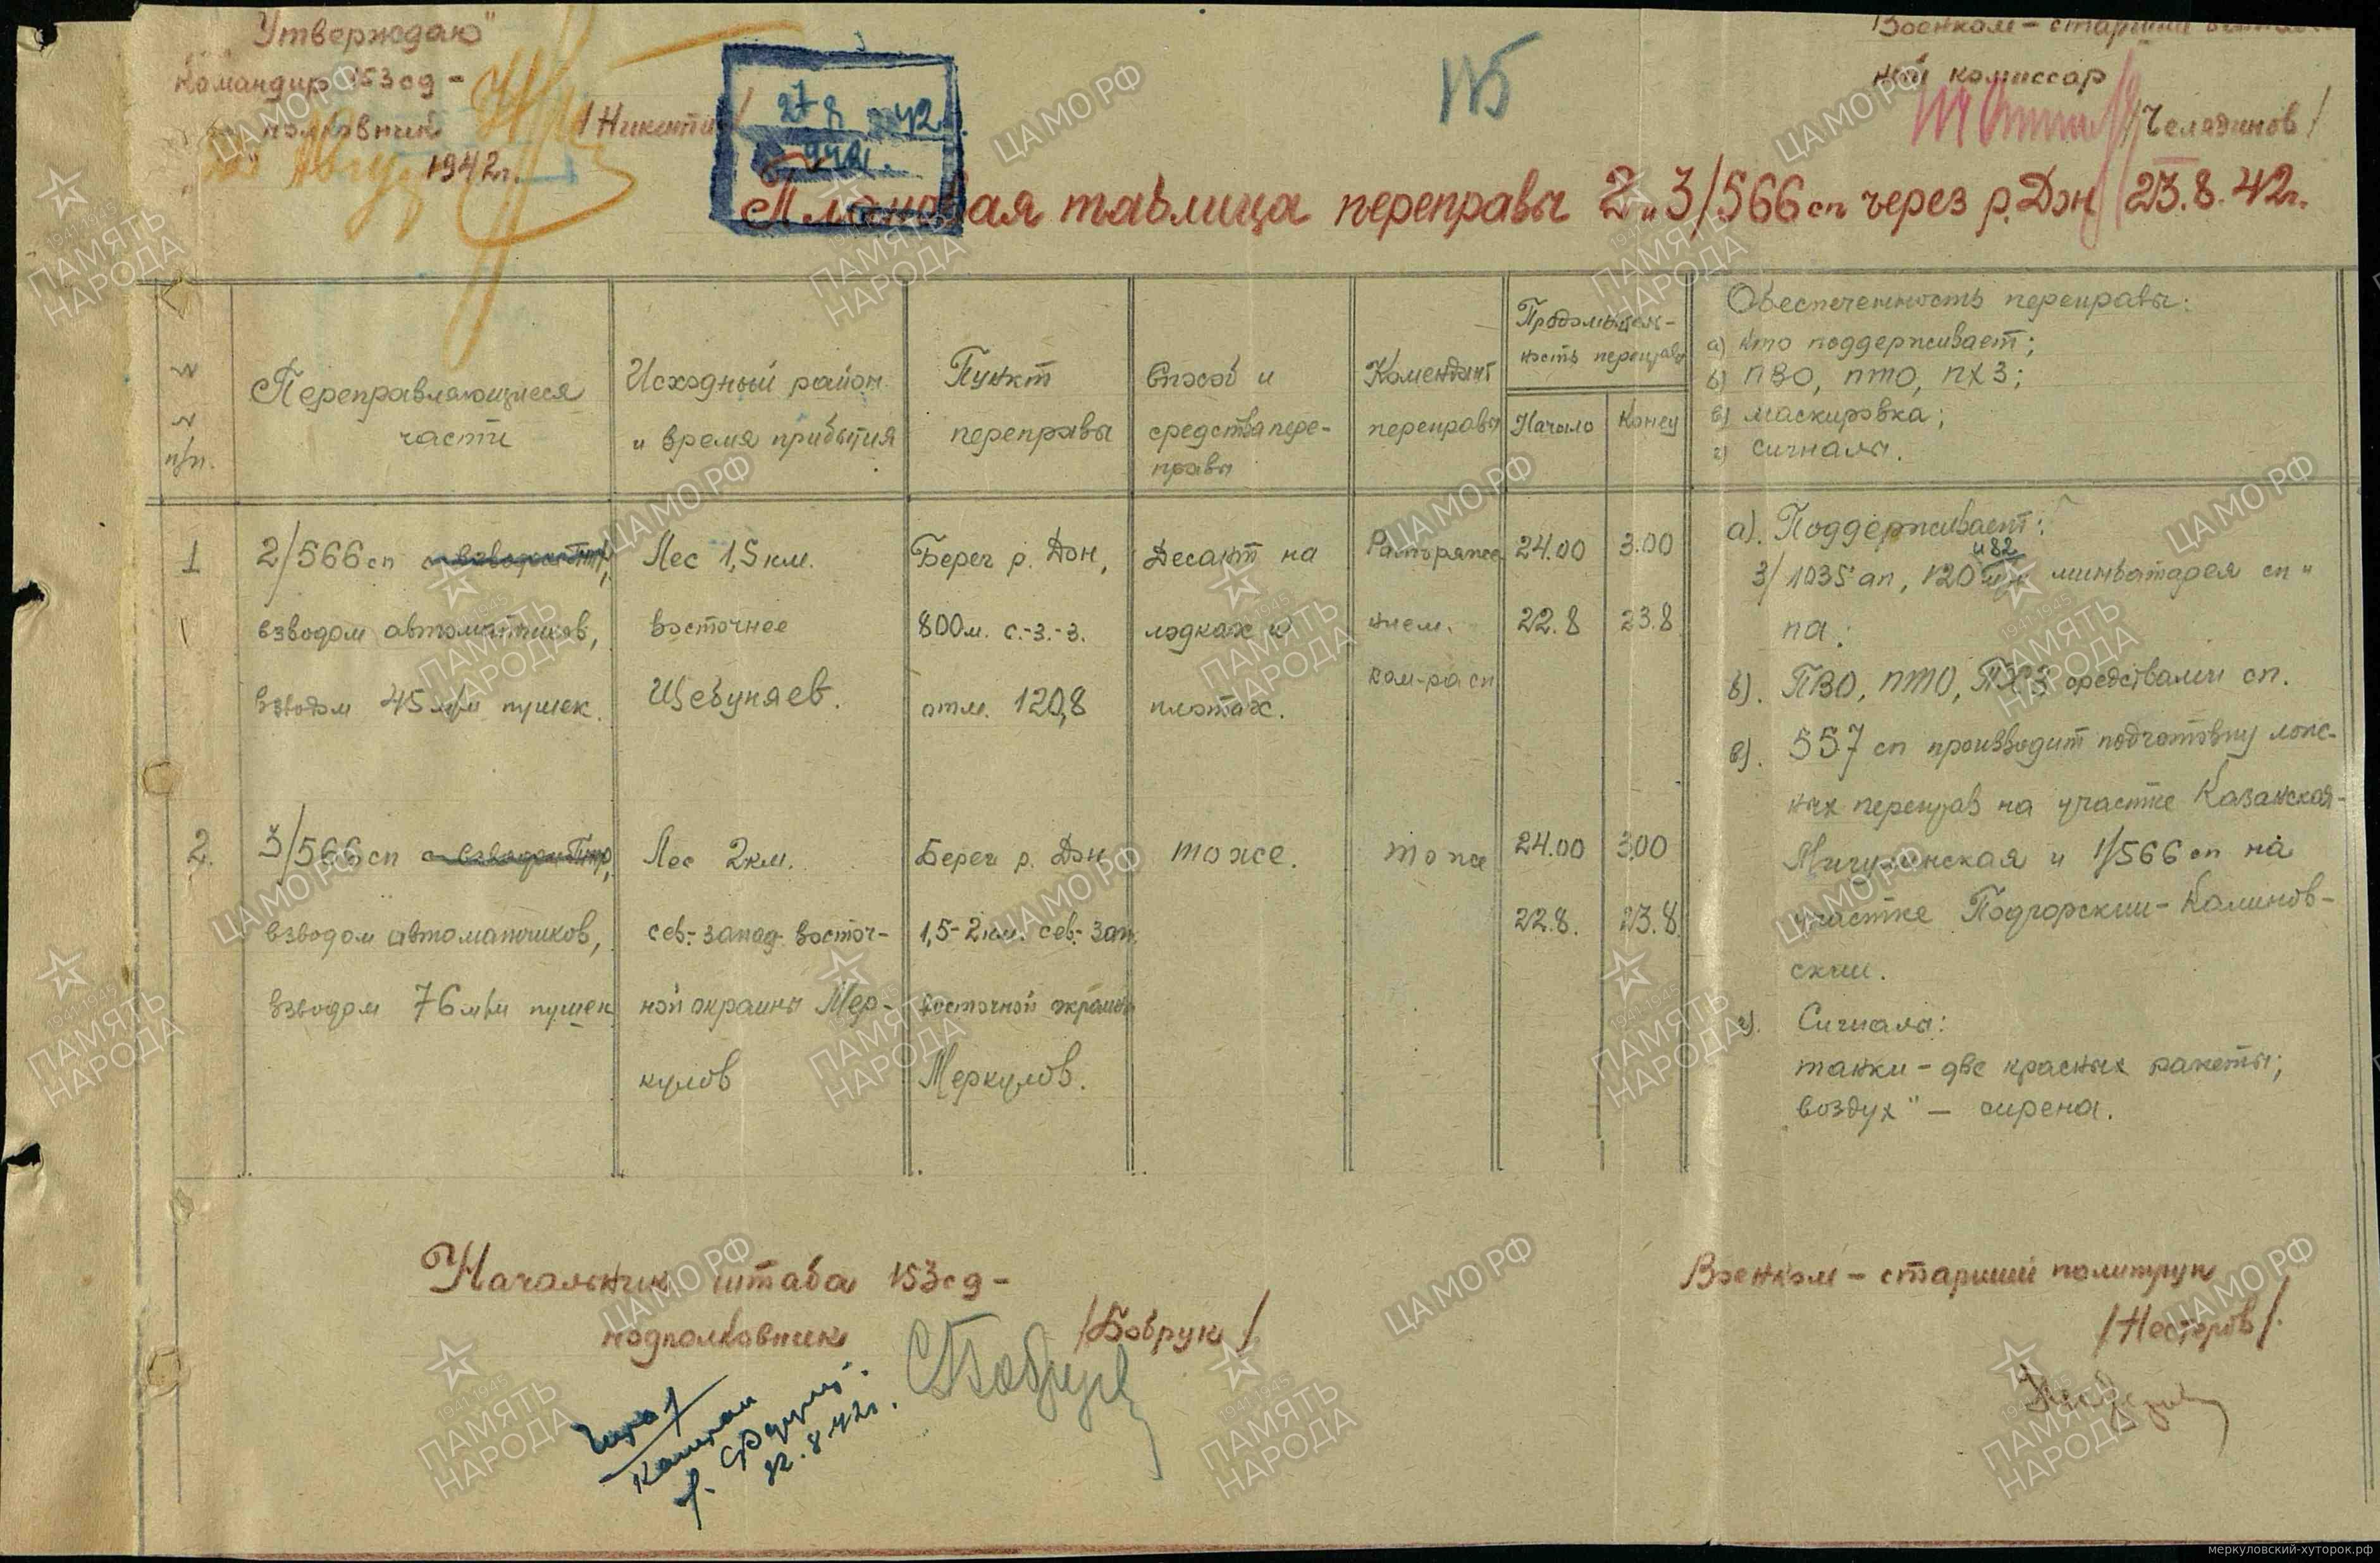 „Утверждаю"
Командир 153 сд -
полковник /Никитин/
1942г.
27 8 42
Военком - старший
ный комиссар
/Челядинов/
Плановая таблица переправы 2 и 3/566 сп через р. Дон 23.8.42г.
№ № п/п.
Переправляющиеся
части
Исходный район
и время прибытия
Пункт
переправы
Способ и
средства пере-
правы
Комендант
переправы
Продолжитель-
ность переправы
Начало
Конец
Обеспеченность переправы:
а) кто поддерживает;
б) ПВО, ПТО, ПХЗ;
в) маскировка;
г) сигналы.
1
2/566 сп
взводом автоматчиков,
взводом 45 м/м пушек.
Лес 1,5 км.
восточнее
Щебуняев.
Берег р. Дон,
800м. с.-з.-з.
отм. 120,8
Десант на
лодках и
плотах.
Распоряже
нием.
ком-ра сп
24.00
22.8
3.00
23.8
2.
3/566 сп
взводом автоматчиков,
взводом 76 м/м пушек
Лес 2км.
сев.-запад. восточ-
ной окраины Мер-
кулов
Берег р. Дон
1,5-2км. сев.-зап.
восточной окраины
Меркулов.
то же.
то же
24.00
22.8.
3.00
23.8.
а). Поддерживает:
и 82
3/1035 ап, 120 м/м минбатарея сп и
па.
б). ПВО, ПТО, ПХЗ средствами сп.
в). 557 сп производит подготовку лож-
ных переправ на участке Казанская-
Мигулинская и 1/566 сп на
участке Подгорский - Калинов-
ский.
г). Сигналы:
танки - две красных ракеты;
воздух" - сирена.
Начальник штаба 153 сд -
подполковник /Бобрук/
Военком - старший политрук
/Нестеров/.
22.8.42г.
115
ЦАМО РФ
1941-1945
ПАМЯТЬ
НАРОДА
меркуловский-хуторок.рф